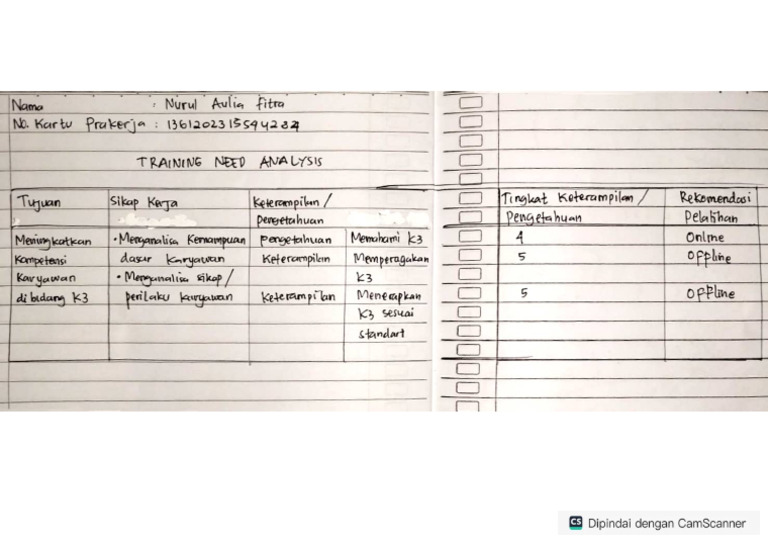 Nama : Nurul Aulia Fitra
No. Kartu Prakerja : 1361202315594284
TRAINING NEED ANALYSIS
Tujuan Sikap Kerja Keterampilan / Tingkat Keterampilan / Rekomendasi
pengetahuan Pengetahuan Pelatihan
Meningkatkan • Menganalisa Kemampuan pengetahuan Memahami K3 4 Online
Kompetensi dasar Karyawan Keterampilan Memperagakan 5 Offline
Karyawan • Menganalisa sikap / K3
di bidang K3 perilaku karyawan Keterampilan Menerapkan 5 Offline
K3 sesuai
standart
CS Dipindai dengan CamScanner